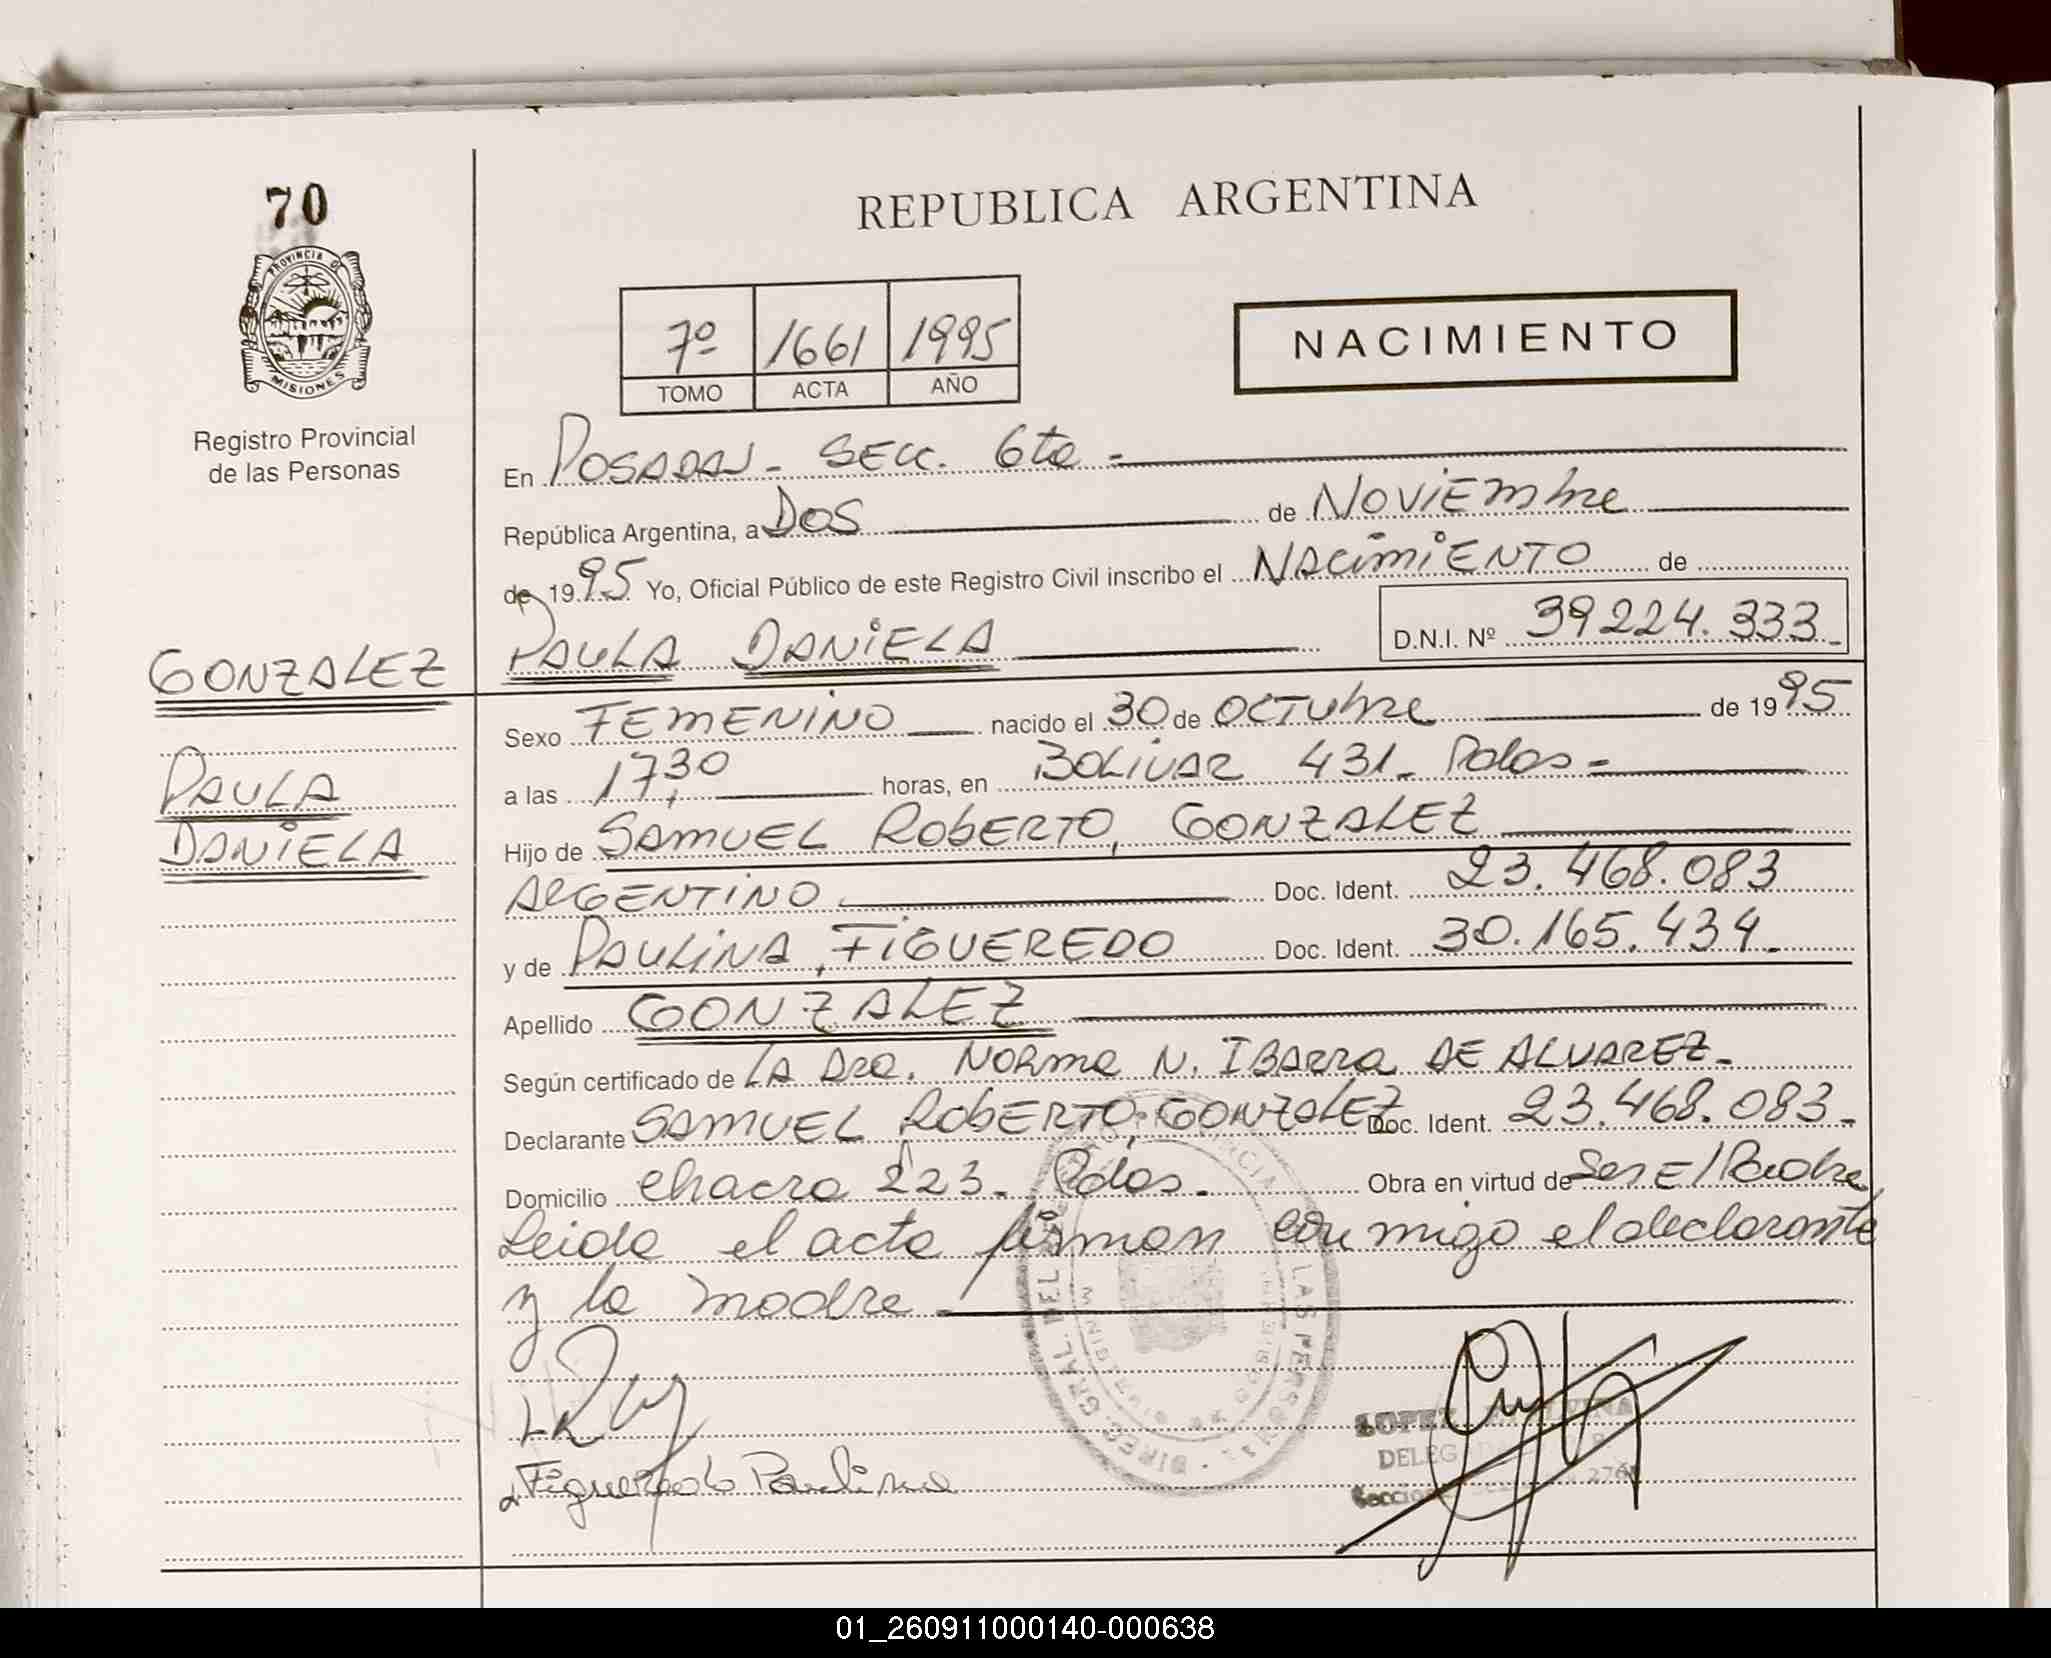 70
PROVINCIA DE
MISIONES
Registro Provincial
de las Personas
REPUBLICA ARGENTINA
7º 1661 1995
TOMO ACTA AÑO
NACIMIENTO
En POSADAS - SECC. 6ta -
República Argentina, a DOS de NOVIEMbre
de 1995 Yo, Oficial Público de este Registro Civil inscribo el NACIMIENTO de
PAULA DANIELA D.N.I. Nº 39224.333-
GONZALEZ
PAULA
DANIELA
Sexo FEMENINO nacido el 30 de OCTUbre de 1995
a las 17,30 horas, en BOLIVAR 431 - Pdas -
Hijo de SAMUEL ROBERTO, GONZALEZ
ARGENTINO Doc. Ident. 23.468.083
y de PAULINA, FIGUEREDO Doc. Ident. 30.165.434-
Apellido GONZALEZ
Según certificado de LA Dra. NORma N. IBARRA DE ALVAREZ-
Declarante SAMUEL ROBERTO, GONZALEZ Doc. Ident. 23.468.083-
Domicilio chacra 223. Pdas. Obra en virtud de Ser El Padre
Leida el acta firman conmigo el declarante
y la madre
Figueredo Paulina
LOPEZ
01_260911000140-000638